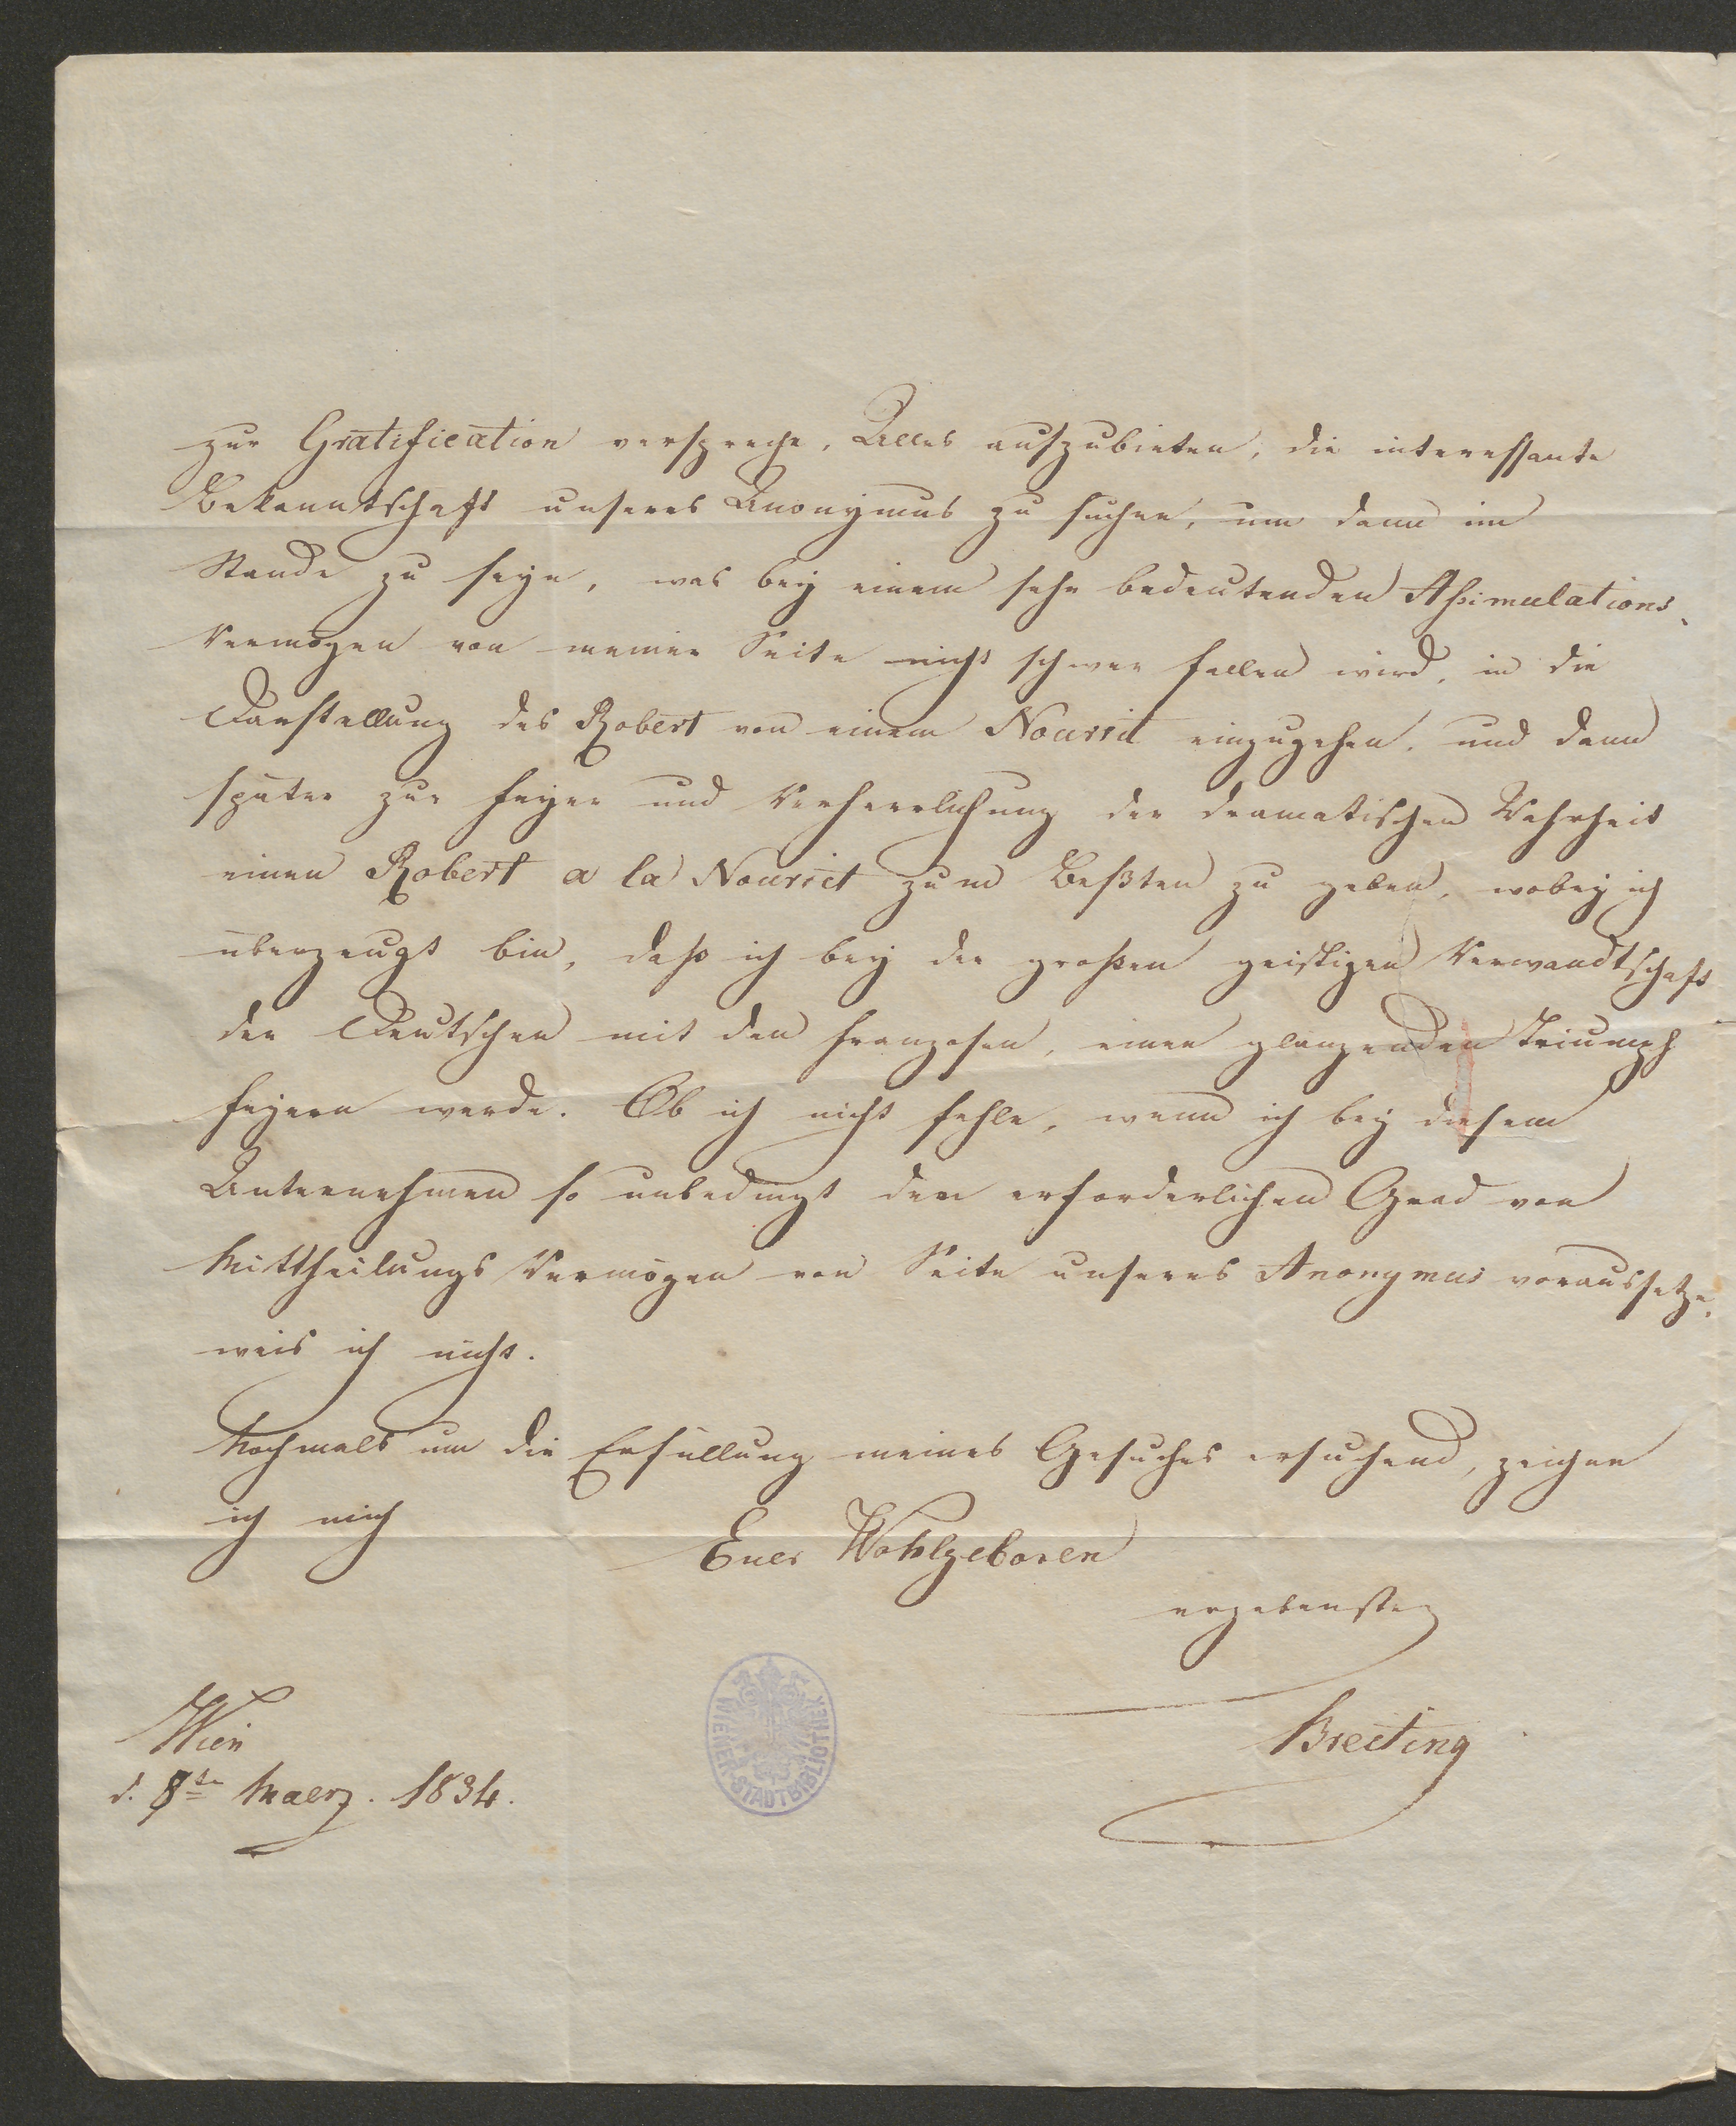 zur Gratification verspreche, Alles aufzubieten, die interessante
Bekanntschaft unseres Anonymus zu suchen, um dann im
Stande zu seyn, was bey einem sehr bedeutenden Aßimulations-
Vermögen von meiner Seite nicht schwer fallen wird, in die
Darstellung des Robert von einem Nourrit einzugehen, und dann
später zur Feyer und Verherrlichung der dramatischen Wahrheit
einen Robert a la Nourrit zum Beßten zu geben, wobey ich
überzeugt bin, daß ich bey der großen geistigen Verwandtschaft
der Deutschen mit den Franzosen, einen glänzenden Triumph
feyern werde. Ob ich nicht fehle, wenn ich bey diesem
Unternehmen so unbedingt den erforderlichen Grad von
Mittheilungs Vermögen von Seite unseres Anonymus voraussetze,
weis ich nicht.
Nochmals um die Erfüllung meines Gesuches ersuchend, zeichne
ich mich
Euer Wohlgeboren
ergebenster
Breiting
Wien
d. 8te Maerz. 1834.
WIENER-STADTBIBLIOTHEK